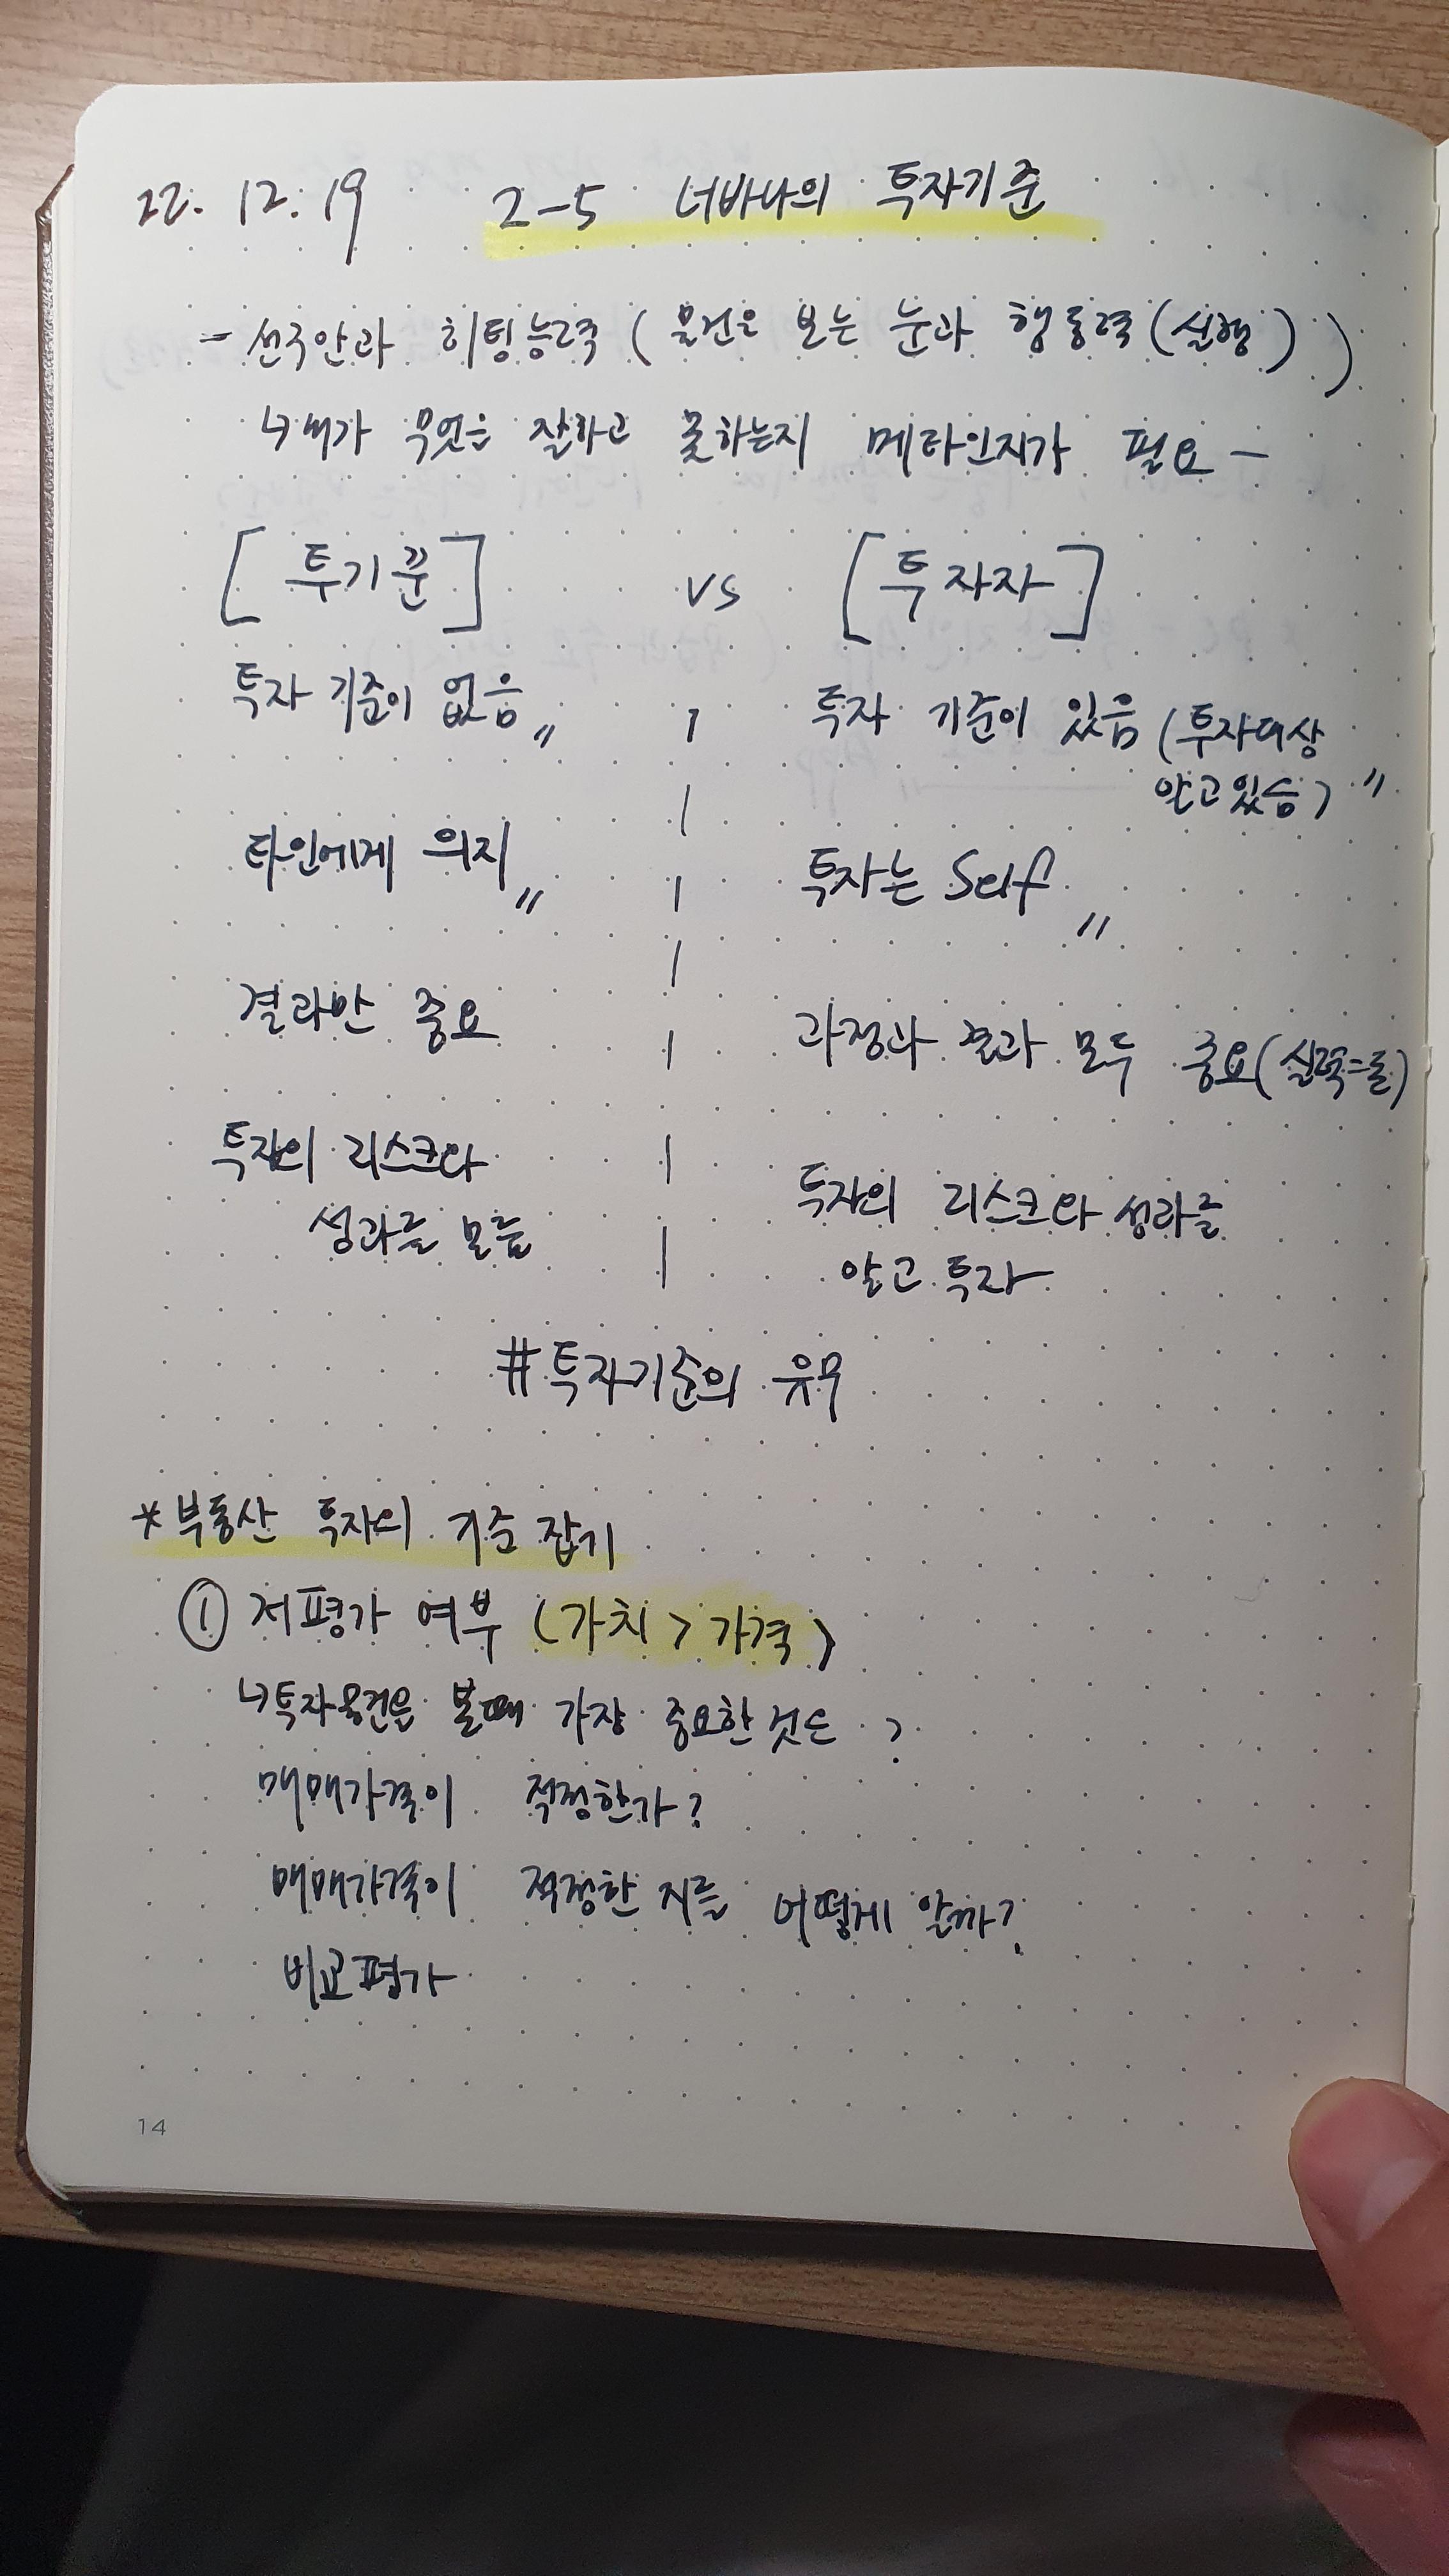 22. 12. 19 2-5 너바나의 투자기준
- 선구안과 히팅능력 ( 물건을 보는 눈과 행동력 (실행) )
↳ 내가 무엇을 잘하고 못하는지 메타인지가 필요 -
[ 투기꾼 ] vs [ 투자자 ]
투자 기준이 없음 〃 투자 기준이 있음 (투자대상
알고있음) 〃
타인에게 의지 〃 투자는 Self 〃
결과만 중요 과정과 결과 모두 중요 (실력=돈)
투자의 리스크와 투자의 리스크와 성과를
성과를 모름 알고 투자
# 투자기준의 유무
* 부동산 투자의 기준 잡기
① 저평가 여부 (가치 > 가격)
↳ 투자물건을 볼때 가장 중요한 것은 ?
매매가격이 적정한가?
매매가격이 적정한 지를 어떻게 알까?
비교평가
14